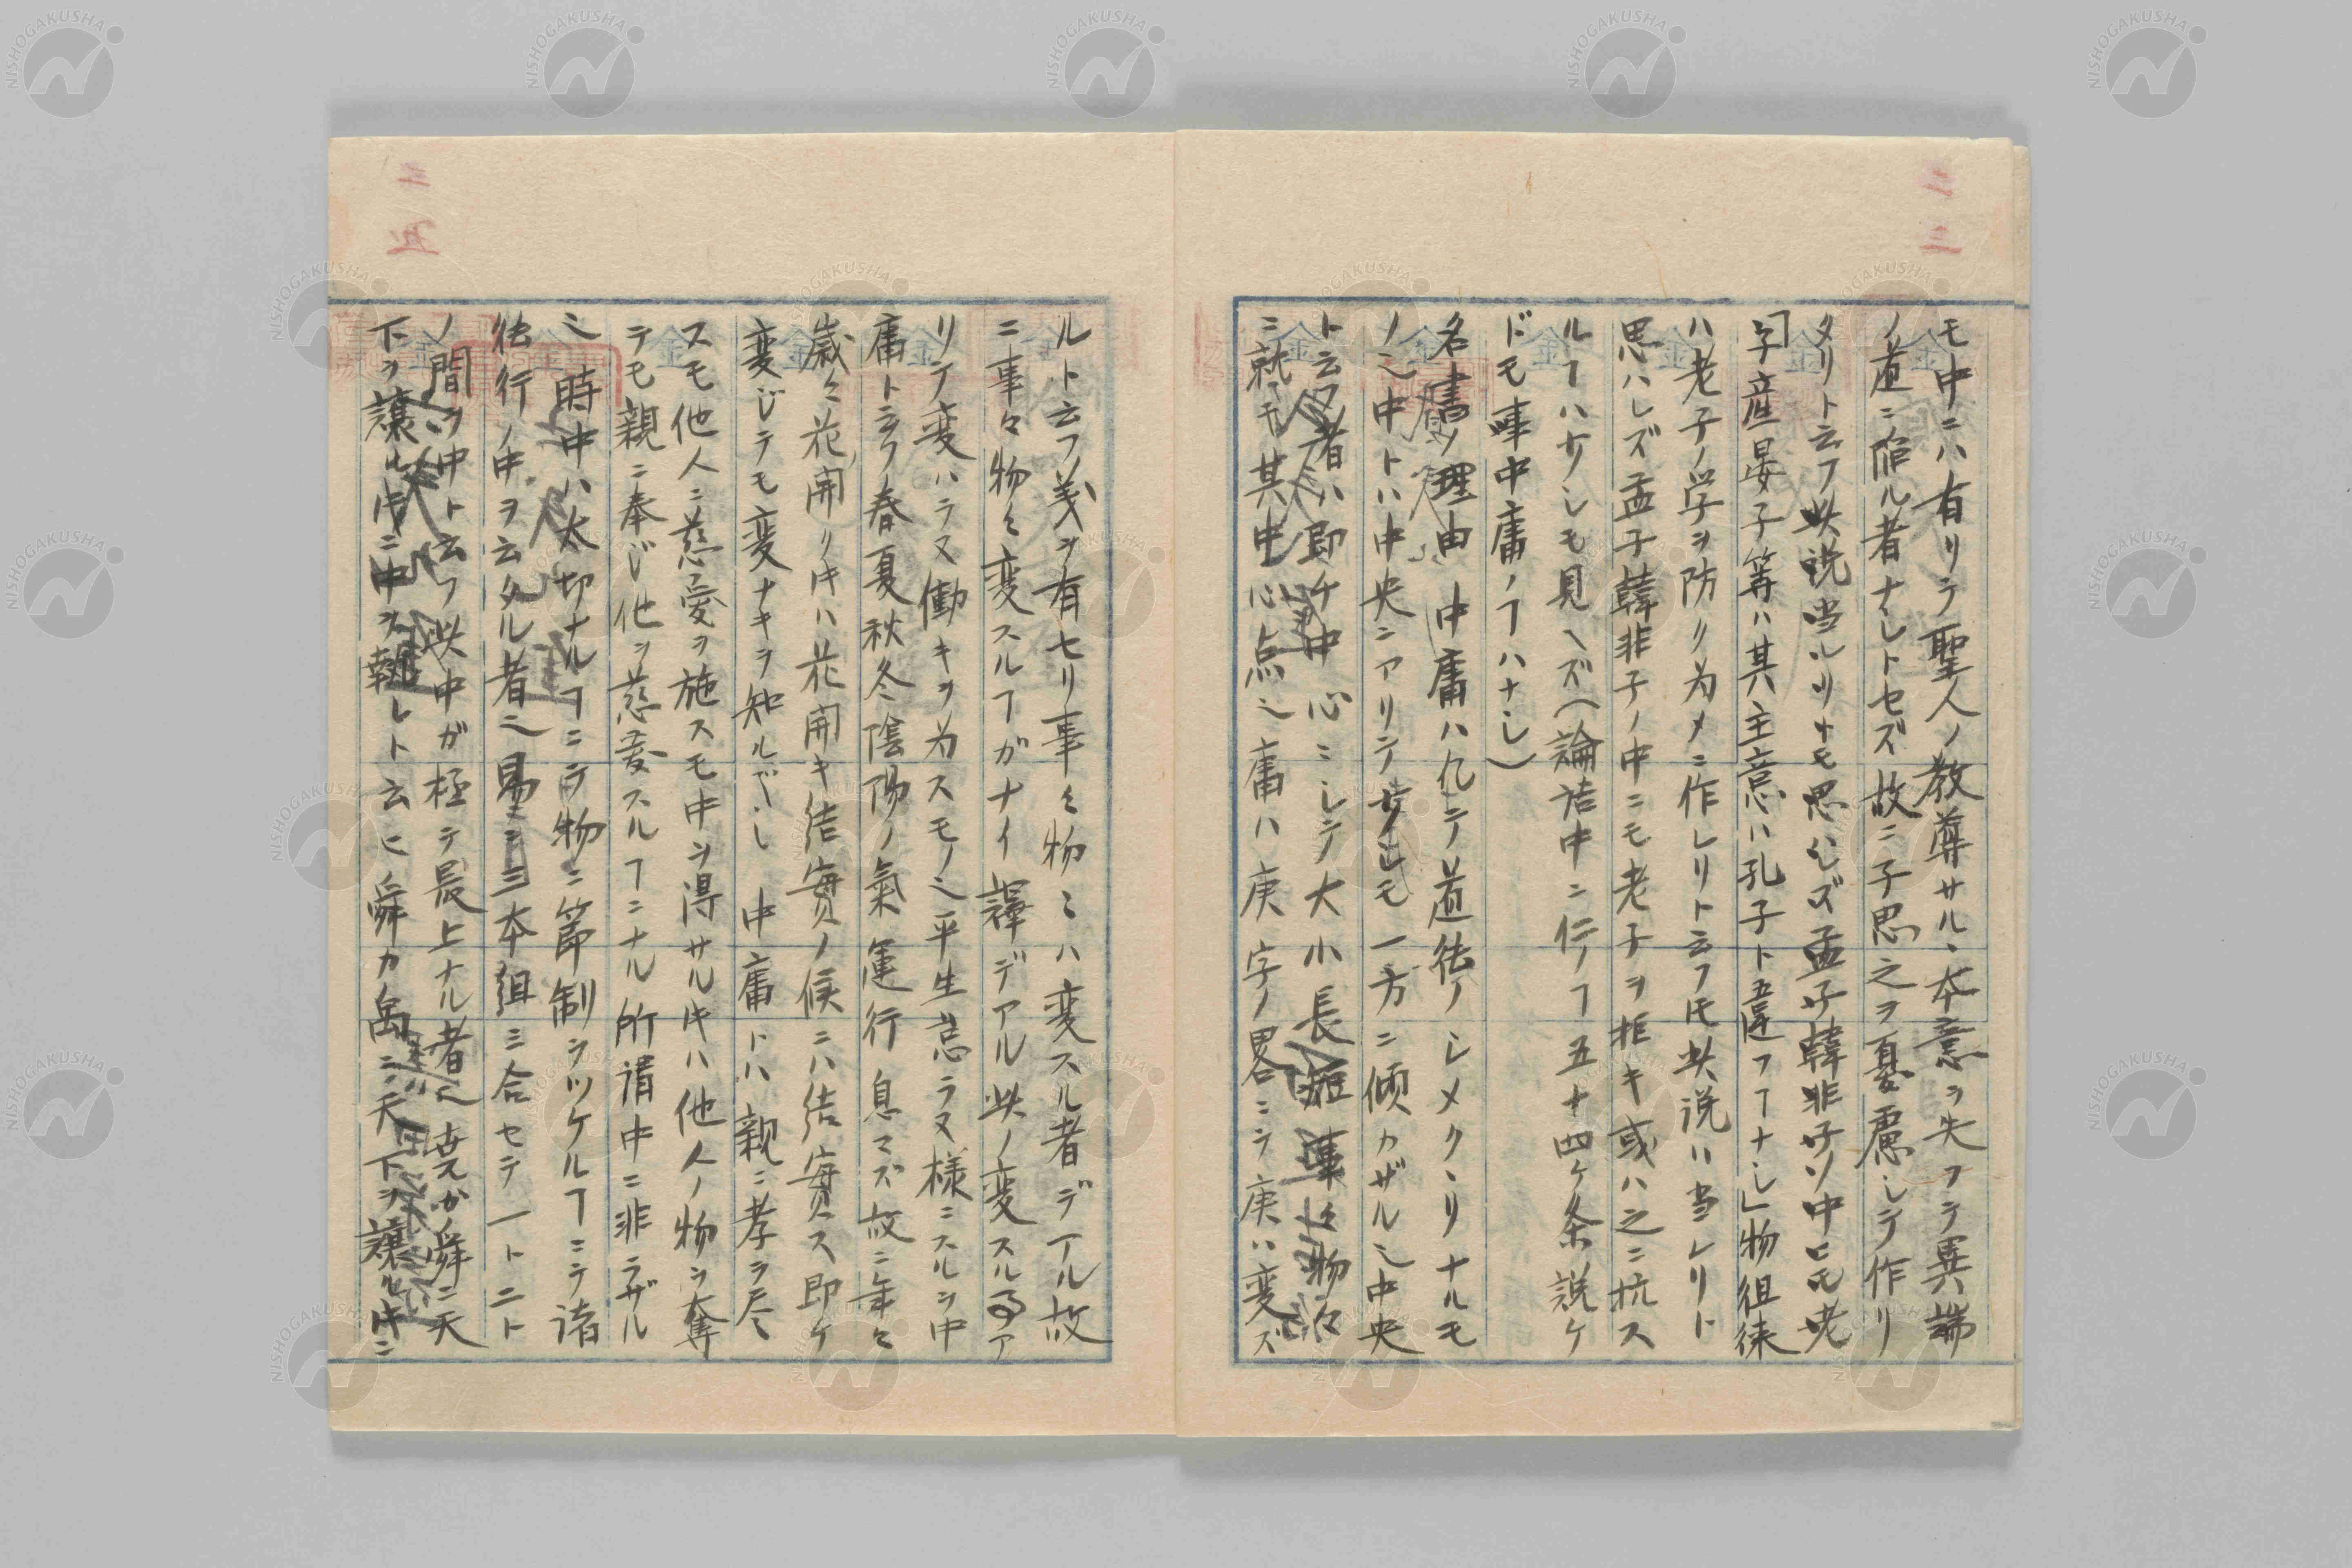 モ中ニハ有リテ聖人ノ教尊サルヽ本意ヲ失フテ異端
ノ道ニ陥ル者ナシトセズ故ニ子思之ヲ憂慮シテ作リ
タリト云フ此説当レリトモ思ハレズ孟子韓非子ノ中ニモ老
「子産晏子等ハ其主意ハ孔子ト違フヿナシ」物徂徠
ハ老子ノ学ヲ防ク為メニ作レリト云フ𪜈此説ハ当レリト
思ハレズ孟子韓非子ノ中ニモ老子ヲ拒キ或ハ之ニ抗ス
ルヿハ少シモ見ヘズ(論語中ニ仁ノヿ五十四ケ条説ケ
ドモ唾中庸ノヿハナシ)
名書ノ理由 中庸ハ凡テ道徳ノシメクヽリナルモ
ノ也中トハ中央ニアリテ少シモ一方ニ傾カザル也中央
ト云フ者ハ即ケ中心ニシテ大小長短事々物々
ニ就テモ其中心点也庸ハ庚字ノ畧ニテ庚ハ変ズ
ルト云フ義ヲ有セリ事々物々ハ変スル者デアル故
ニ事々物々変スルヿガナイ譯デアル此ノ変スル
リテ変ハラヌ働キヲ為スモノ也平生怠ラヌ様ニスルヲ中
庸ト云フ春夏秋冬陰陽ノ氣運行息マズ故ニ年々
歳々花開リ𪜈ハ花開キ結実ノ候ニハ結実ス即ケ
変ジテモ変ナキヲ知ルベシ 中庸トハ親ニ孝ヲ尽
スモ他人ニ慈愛ヲ施スモ中ヲ得サル𪜈ハ他人ノ物ヲ奪
テモ親ニ奉ジ他ヲ慈愛スルヿニナル所謂中ニ非ラザル
也 時中ハ太切ナルヿニテ物ニ節制ヲツケルヿニテ諸
徳行ノ中ヲ云タル者也易ニ三本組ミ合セテ一ト二ト
ノ間ヲ中ト云フ此中ガ極テ長上ナル者也尭カ舜ニ天
下ヲ譲ル𪜈ニ中ヲ執レト云ヒ舜カ禹ニ天下ヲ譲ル𪜈ニ